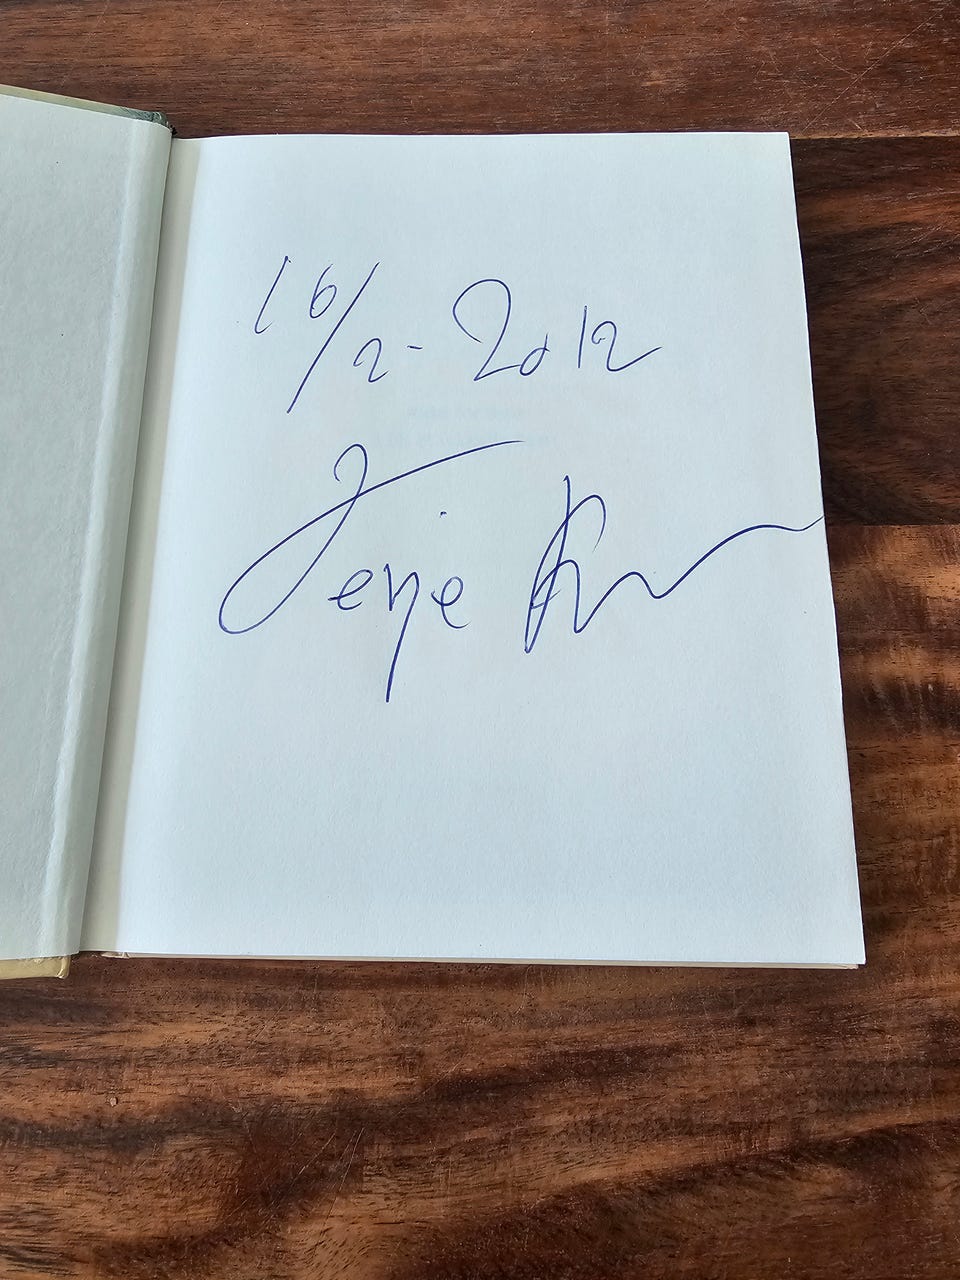 16/2-2012
Terje